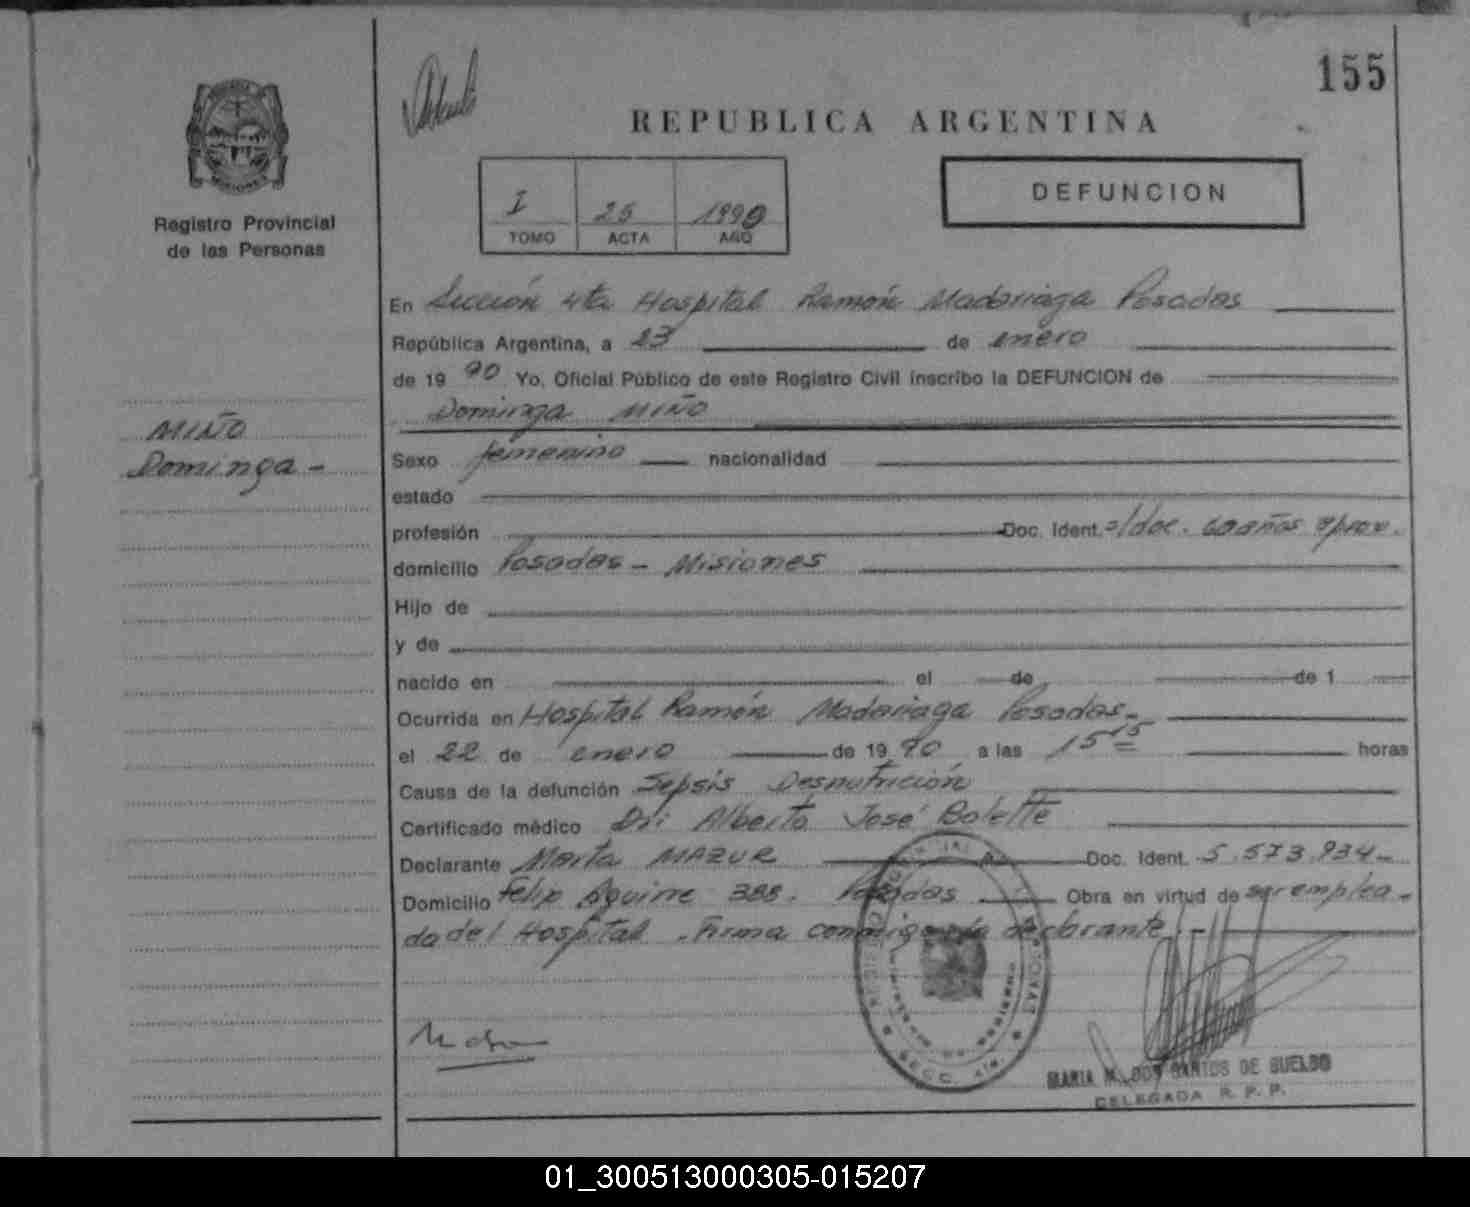 155
REPUBLICA ARGENTINA
MISIONES
Registro Provincial
de las Personas
I 25 1990
TOMO ACTA AÑO
DEFUNCION
En Sección 4ta Hospital Ramón Madariaga Posadas
República Argentina, a 23 de enero
de 1990 Yo, Oficial Público de este Registro Civil inscribo la DEFUNCION de
Dominga MIÑO
MIÑO
Dominga -
Sexo femenino nacionalidad
estado
profesión Doc. Ident. s/doc. 60 años aprox.
domicilio Posadas - Misiones
Hijo de
y de
nacido en el de de 1
Ocurrida en Hospital Ramón Madariaga Posadas -
el 22 de enero de 1990 a las 15 15 horas
Causa de la defunción Sepsis Desnutrición
Certificado médico Dr: Alberto José Bolette
Declarante Marta MAZUR Doc. Ident. 5.573.934 -
Domicilio Félix Aguirre 388. Posadas Obra en virtud de ser emplea-
da del Hospital. Firma conmigo la declarante. -
SECC. 4ta.
MARIA M. DOS SANTOS DE SUELDO
DELEGADA R. P. P.
01_300513000305-015207